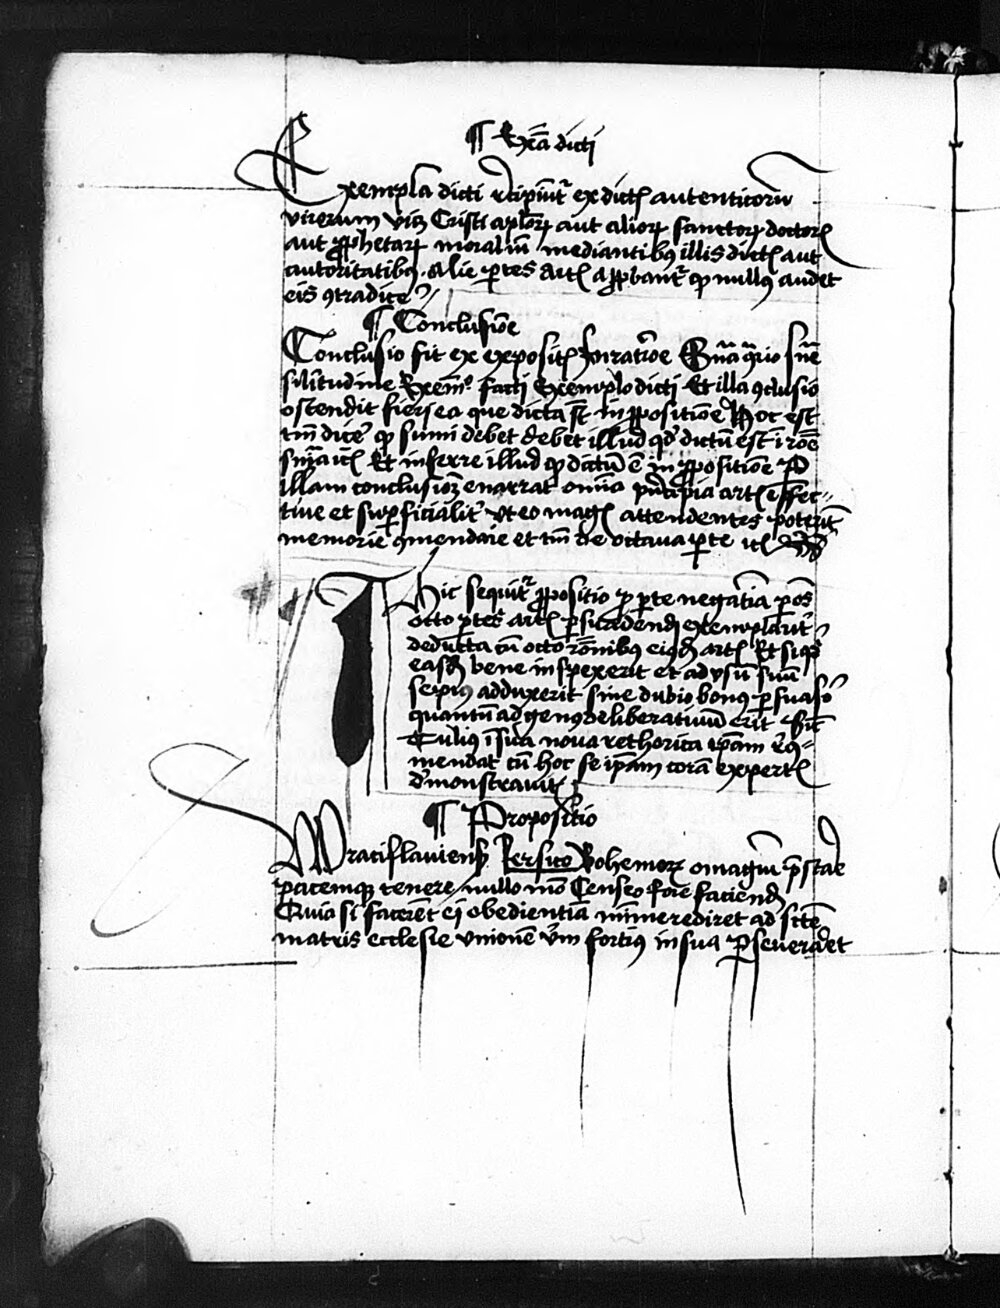 ¶ Exa dicti
Exempla dicti recipiunt ex dictis autenticorum
virorum videlicet Cristi aplorum aut aliorum sanctorum doctorum
aut prophetarum moralium mediantibus illis dictis aut
autoritatibus. Alie partes artis approbantur quod nullus audet
eis contradicere
¶ Conclusione
Conclusio fit ex expositis
silitudine facti exemplo dicti Et illa conclusio
ostendit fieri ea que dicta sunt in propositione Hoc est
tm dicere quod sumi debet debet illud quod dictum est i
Et inferre illud quod dictum e in propositione
illam conclusionem enarrat omnia principia artis effec-
tiue et superficialiter Ut eo magis attendentes poterint
memorie commendare et tm de octaua parte
Hic sequitur propositio pro parte negatiua
octo partes artis persuadendi exemplariter
deducta cum octo rationibus eiusdem artis Et si quis
easdem bene inspexerit et ad usum suum
sepius adduxerit sine dubio bonus persuasor
quantum ad genus deliberatiuum erit
Tulius in sua noua rethorica ipsam
mendat cum hoc se ipsam coram expertis
demonstrauit
¶ Propositio
Wratislauiensis Bohemorum omagium prestare
pacemque tenere nullo modo Censeo fore faciendum
Quia si facerent ei obedientiam minime rediret ad sancte
matris ecclesie unionem verum fortius in sua perseueraret